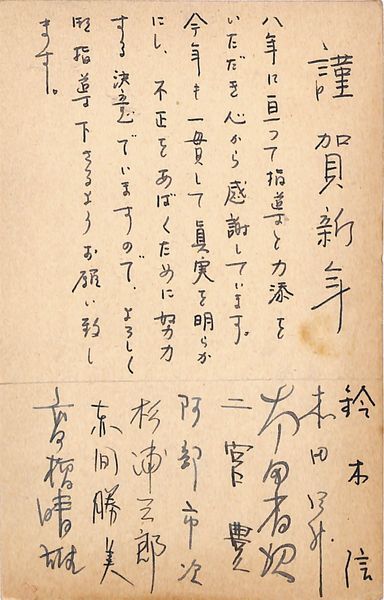 謹賀新年
八年に亘って指導と力添を
いただき心から感謝しています。
今年も一貫して眞実を明らか
にし、不正をあばくために努力
する決意でいますので、よろしく
御指導下さるようお願い致し
ます。
鈴木信
本田昇
太田省次
二宮豊
阿部市次
杉浦三郎
赤間勝美
高橋晴雄